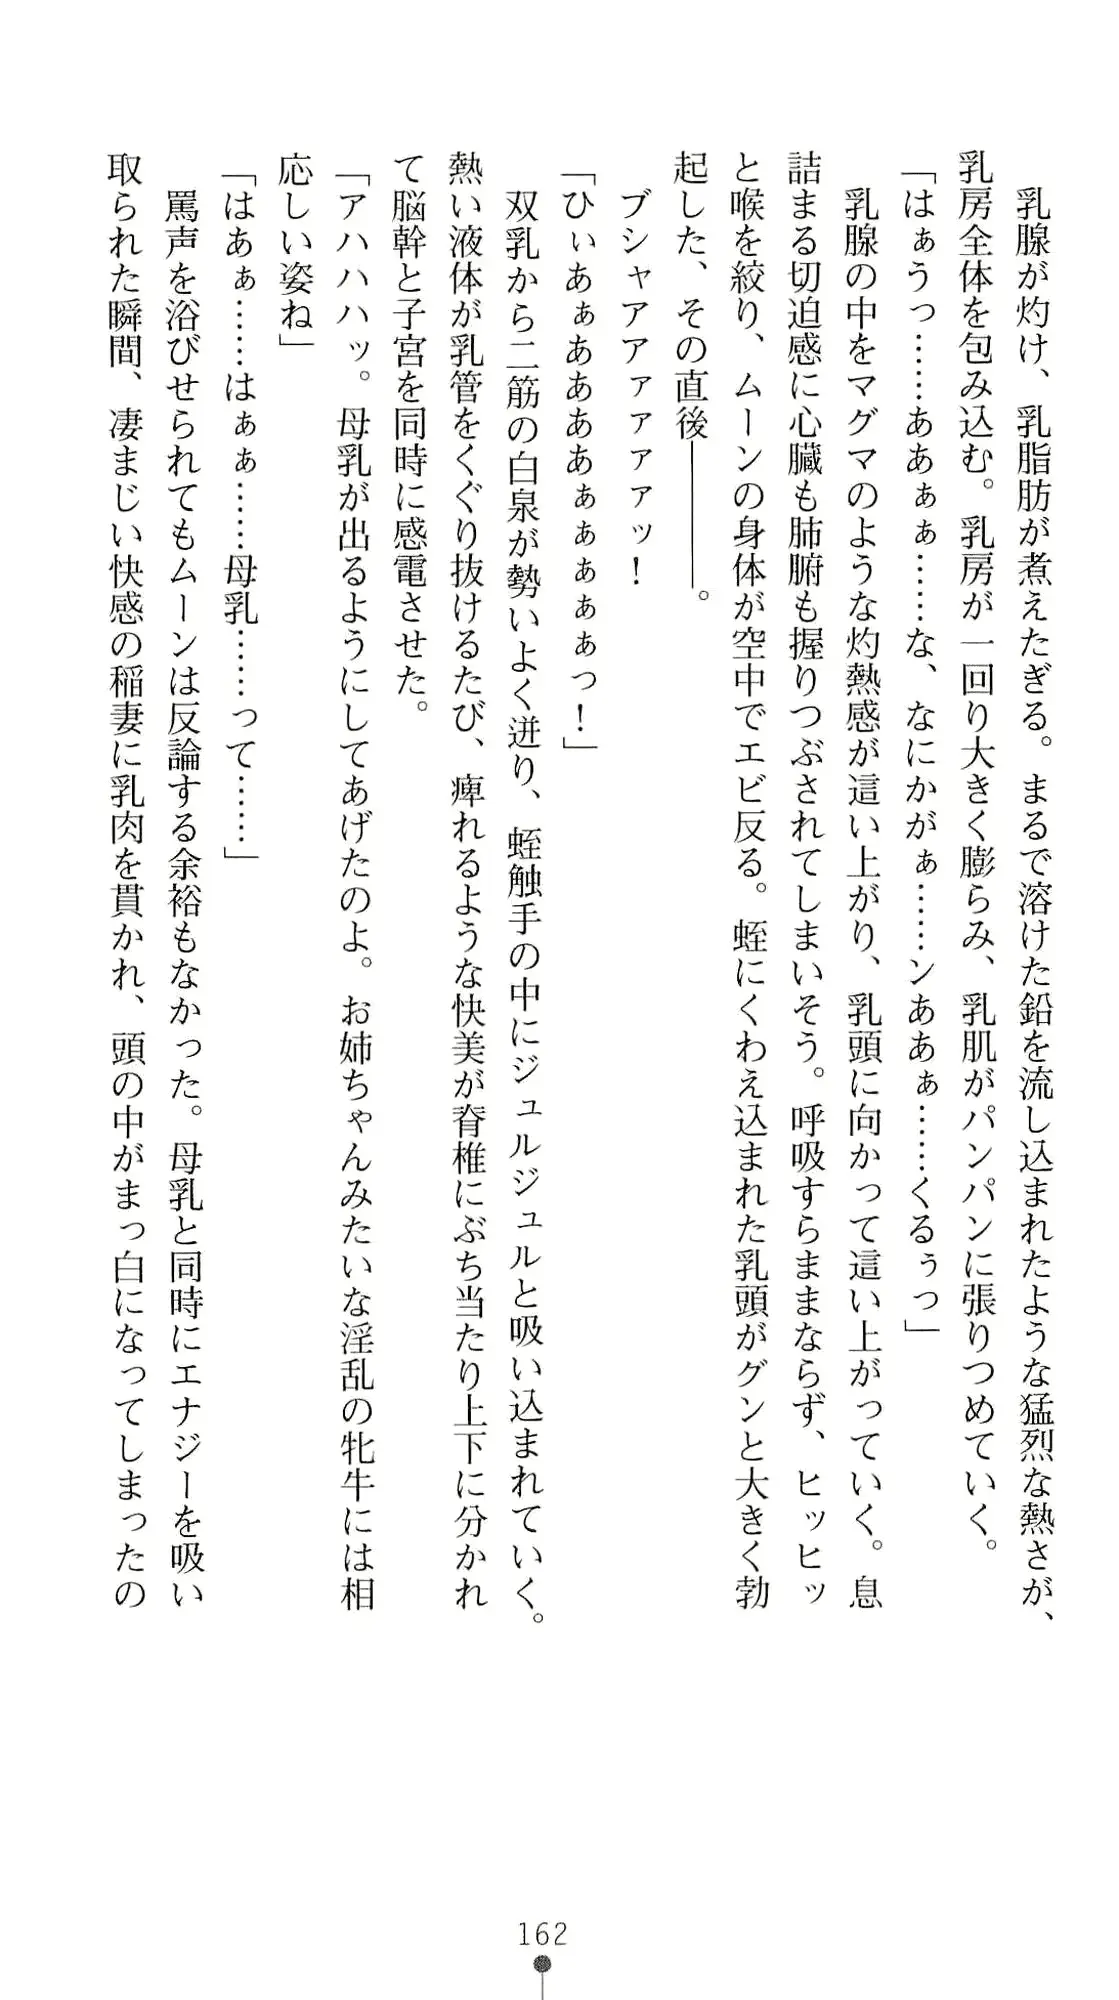 乳腺が灼け、乳脂肪が煮えたぎる。まるで溶けた鉛を流し込まれたような猛烈な熱さが、
乳房全体を包み込む。乳房が一回り大きく膨らみ、乳肌がパンパンに張りつめていく。
「はぁうっ……ああぁぁ……な、なにかがぁ……ンああぁ……くるぅっ」
乳腺の中をマグマのような灼熱感が這い上がり、乳頭に向かって這い上がっていく。息
詰まる切迫感に心臓も肺腑も握りつぶされてしまいそう。呼吸すらままならず、ヒッヒッ
と喉を絞り、ムーンの身体が空中でエビ反る。蛭にくわえ込まれた乳頭がグンと大きく勃
起した、その直後――――。
ブシャアアァァァァッ！
「ひぃあぁああああぁぁぁぁぁっ！」
双乳から二筋の白泉が勢いよく迸り、蛭触手の中にジュルジュルと吸い込まれていく。
熱い液体が乳管をくぐり抜けるたび、痺れるような快美が脊椎にぶち当たり上下に分かれ
て脳幹と子宮を同時に感電させた。
「アハハハッ。母乳が出るようにしてあげたのよ。お姉ちゃんみたいな淫乱の牝牛には相
応しい姿ね」
「はあぁ……はぁぁ……母乳……って……」
罵声を浴びせられてもムーンは反論する余裕もなかった。母乳と同時にエナジーを吸い
取られた瞬間、凄まじい快感の稲妻に乳肉を貫かれ、頭の中がまっ白になってしまったの
162